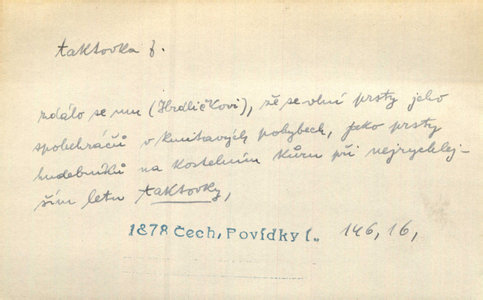 taktovka f.
zdálo se mu (Hrdličkovi), že se vlní prsty jeho
spoluhráčů v kmitavých pohybech, jako prsty
hudebníků na kostelním kůru při nejrychlej-
ším letu taktovky,
1878 Čech, Povídky I. 146,16,